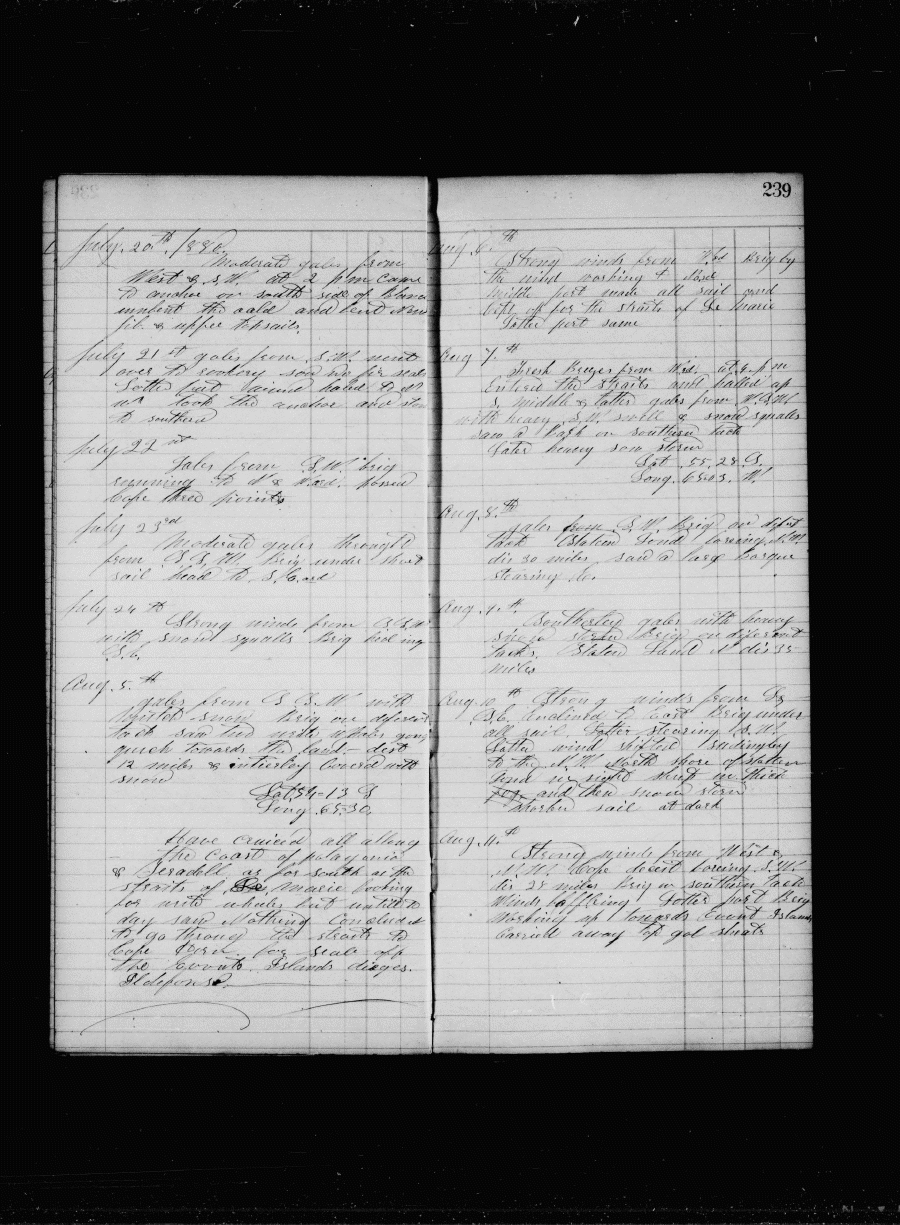 July 20th 1880.
Moderate gales from
West & S.W. at 2 p.m. came
to anchor on south side of
unbent the and bent New
jib & upper topsails.
July 21st gales from S.W. went
over to rookery saw no fur seals
Latter part wind to
took the anchor and
to southerd
July 22nd
Gales from S.W. brig
running to N & passed
Cape three points
July 23rd
Moderate gales throught
from S.S.W. Brig under short
sail head to S.Eard
July 24th
Strong winds from S.S.W
with snow squalls Brig heading
S.E.
Aug. 5.th
gales from S S.W with
snow Brig on diferent
tack saw two whales going
quick towards the land - dist
12 miles & intierley Covered with
snow
Lat 54-13 S
Long. 65-30.
Have cruiced all allong
the Coast of patagonia
& as far south as the
straits of Le Maire looking
for whales but untill to
day saw Nothing Concluded
to go throug the straits to
Cape Horn for seals off
the Islands diegos.
Ildefonso.
239
Aug. 6.th
Strong winds from Wrd Brig by
the wind working to
Middle part made all sail and
kept off for the straits of Le Marie
Latter part same
Aug 7.th
Fresh Brezes from W.rd. at 4 p m
Entered the Straits and halled up
S. Middle & latter gales from W.S.W
with heavy S.W. swell & snow squales
saw a Bark on southern tack
Later heavy snow storm
Lat. 55.28 S.
Long. 65.03. W.
Aug. 8.th
gales from S.W. Brig on difent
tack Staten Land bareing N.W.
dis 30 miles saw a larg Barque
stearing
Aug. 9.th
Southerley gales with heavey
snow storm Brig on different
tacks, Staten Land N dis 35
miles
Aug. 10th Strong winds from S
S.E. Brig under
all sail. Latter stearing S.W.
Latter wind shifted sudingley
to the N.W. North shore of Staten
land in sight shut in thick
fog. and then snow storm
shorten sail at dark
Aug. 11.th
Strong winds from West &
N.W. Cape deceit bareing S.W.
dis 28 miles Brig on southern tack
Winds baffling Latter part Brig
Working up towards Islands
Carried away top gal sheats